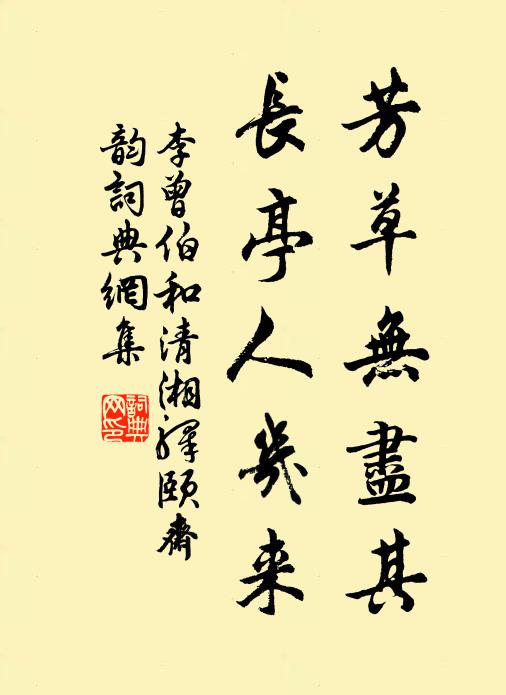 芳草無盡其
長亭人幾来
李曾伯和清湘驛頤齋
韵詞典網集
詞典
网印